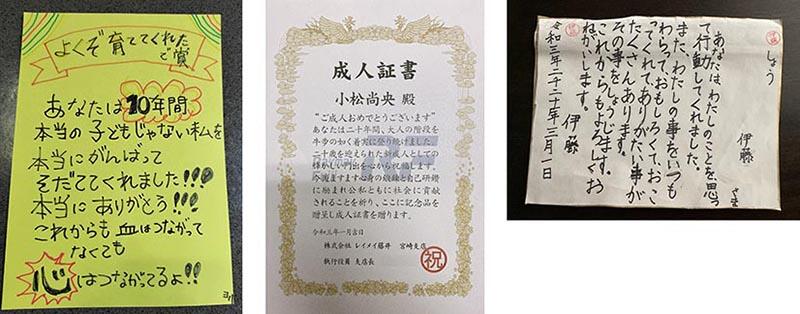 よくぞ育ててくれた
で賞
あなたは10年間
本当の子どもじゃない私を
本当にがんばって
そだててくれました!!!
本当にありがとう!!!
これからも血はつながって
なくても
心はつながってるよ!!
成人証書
小松尚央 殿
“ご成人おめでとうございます”
あなたは二十年間、大人の階段を
牛歩の如く着実に登り続けました
二十歳を迎えられた新成人としての
輝かしい門出を心から祝福します
今後ますます心身の鍛錬と自己研鑽
に励まれ公私ともに社会に貢献
されることを祈り、ここに記念品を
贈呈し成人証書を贈ります。
令和三年一月吉日
株式会社 レイメイ藤井 宮崎支店
執行役員 支店長
祝
しょう
伊藤 さま
あなたはわたしのことを、思っ
て行動してくれました。
また、わたしの事をいつも
わらって、おもしろくて、おこ
ってくれて、ありがたい事が
たくさんあります。
その事をしょうします。
これからもよろしくお
ねがいします。
伊藤
令和三年二千二十年三月一日